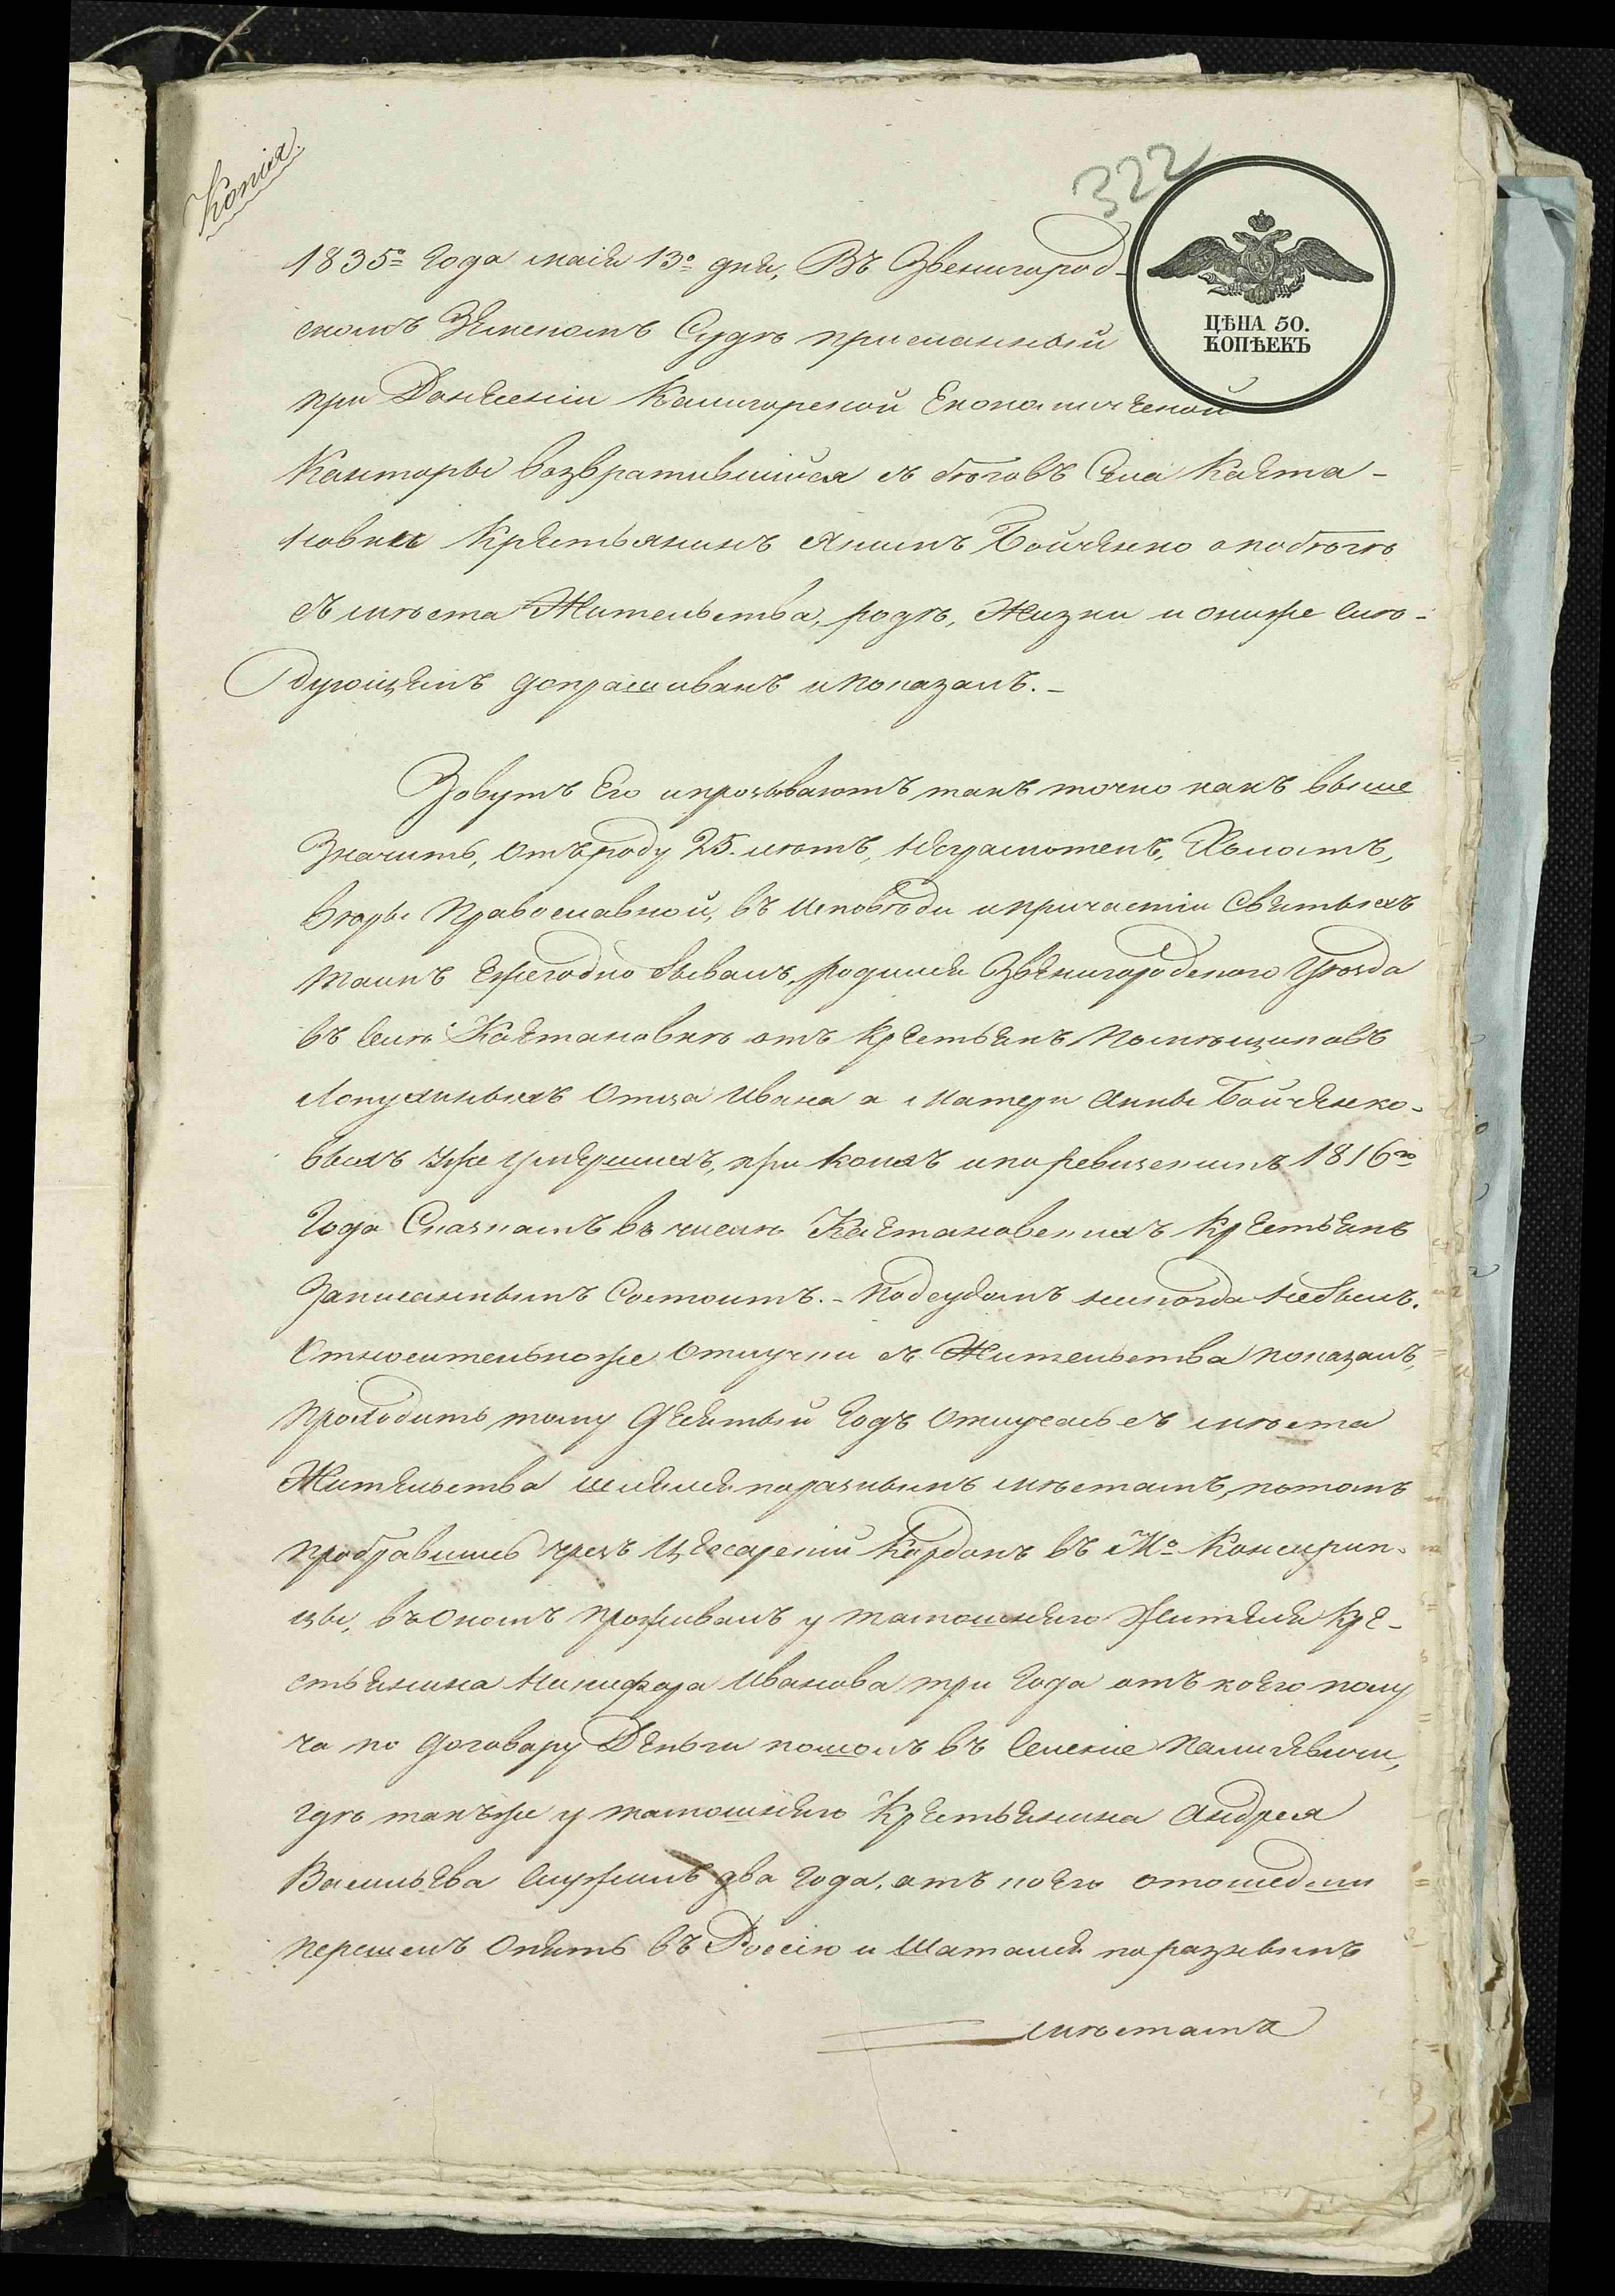 Копія
322
ЦѢНА 50.
КОПѢЕКЪ
1835го Года маія 13го дня, Въ Звенигород-
скомъ Земскомъ Судѣ присланный
при Донесеніи Калигорской Економической
Канторы возвратившійся съ бѣговъ Села Каета-
новки Крестьянинъ Якимъ Бойченко опобѣгѣ
съ мѣста Жительства, родѣ, Жизни и ониже слѣ-
дующемъ допрашиванъ и показалъ.-
Зовутъ Его ипрозываютъ такъ точно какъ выше
Значитъ, Отъ роду 25. лѣтъ, неграмотенъ, Холостъ,
вѣры Православной, въ исповѣди ипричастіи Святыхъ
таинъ Ежегодно бывалъ, родился Звѣнигородского Уѣзда
въ селѣ Каетановкѣ отъ крестьянъ Помѣщиковъ
Лопухиныхъ Отца Ивана а матери Анны Бойченко-
выхъ уже умершихъ, при коихъ ипоревизскимъ 1816го
Года Сказкамъ въ числѣ Каетановскихъ крестьянъ
Записаннымъ Состоитъ.- Подсудомъ никогда небылъ.
Относительноже Отлучки съ Жительства показалъ,
проходитъ тому Девятый Годъ отлучась съ мѣста
Жительства шлялся поразнымъ мѣстамъ, потомъ
пробравшись чрезъ Цесарскій Кордонъ въ Мо
въ Ономъ проживалъ у тамошняго Жителя Кре-
стьянина Никифора Иванова три Года отъ коего полу
ча по договору Деньги пошолъ въ Селеніе
гдѣ такъже у тамошняго Крестьянина Андрея
Васильева служилъ два Года, отъ коего отошедши
перешелъ Опять въ Россію и Шатался поразнымъ
мѣстамъ